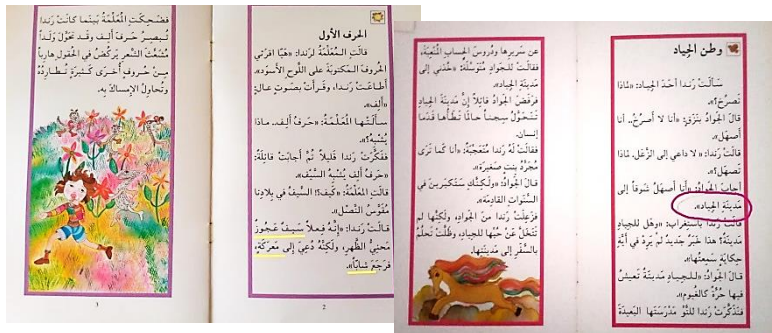 الحرف الأول
قالَتِ المُعَلِّمَةُ لرَندا: «هَيَّا اقرَئي
الحُروفَ المَكتوبَةَ على اللَّوحِ الأَسوَدِ».
أَطاعَت رَندا، وقَرَأَتْ بصَوتٍ عالٍ:
«أَلِف».
سأَلَتْها المُعَلِّمَةُ: «حَرفُ أَلِف.. ماذا
يُشْبِهُ؟».
ففَكَّرَتْ رَندا قَليلاً ثُمَّ أجابَتْ قائِلَةً:
«حَرفُ أَلِف يُشبِهُ السَّيْفَ».
قالَتِ المُعَلِّمَةُ: «كَيفَ؟! السَّيفُ في بِلادِنا
مُقَوَّسُ النَّصْلِ».
قالَتْ رَندا: «إنَّه فِعلاً سَيفٌ عَجُوزٌ
مَحنِيُّ الظَّهرِ، ولَكِنَّه دُعِيَ إلى مَعرَكَةٍ،
فرَجَعَ شابًّا».
٢
فضَحِكَتِ المُعَلِّمَةُ بَينَما كانَتْ رَندا
تُبصِرُ حَرفَ أَلِف وقَد تَحَوَّلَ وَلَداً
مُشَعَّثَ الشَّعرِ يَركُضُ في الحُقولِ هارِباً
مِن حُروفٍ أُخرَى كَثيرَةٍ تُطارِدُه
وتُحاوِلُ الإمساكَ بِه.
وطن الجياد
سَأَلَتْ رَندا أَحَدَ الجِيادِ: «لماذا
تَصرُخُ؟».
قالَ الجَوادُ بنَزَقٍ: «أنا لا أَصرُخُ.. أنا
أَصهِل».
قالَتْ رَندا: «لا داعي إلى الزَّعَلِ. لماذا
تَصهِلُ؟».
أجابَ الجَوادُ: «أنا أَصهِلُ شَوقاً إلى
مَدينَةِ الجِيادِ».
قالَتْ رَندا باستِغرابٍ: «وهَل للجِيادِ
مَدينَةٌ؟ هذا خَبَرٌ جَديدٌ لَم يَرِدْ في أَيَّةِ
حِكايَةٍ سَمِعتُها».
قالَ الجَوادُ: «للجِيادِ مَدينَةٌ تَعيشُ
فيها حُرَّةً كالغُيومِ».
فتَذَكَّرَتْ رَندا للتَّوِّ مَدرَسَتَها البَعيدَةَ
عن سَريرِها ودُروسَ الحِسابِ المُتعِبَةَ،
فقالَتْ للجَوادِ مُتَوَسِّلَةً: «خُذني إلى
مَدينَةِ الجِيادِ».
فرَفَضَ الجَوادُ قائِلاً إنَّ مَدينَةَ الجِيادِ
تَتَحَوَّلُ سِجناً حالَما تَطَأُها قَدَما
إنسان.
فقالَتْ لَهُ رَندا مُتَعَجِّبَةً: «أنا كَما تَرَى
مُجَرَّدُ بِنتٍ صَغيرَة».
قالَ الجَوادُ: «ولَكِنَّكِ سَتَكبَرينَ في
السَّنَواتِ القادِمَة».
فزَعِلَتْ رَندا مِنَ الجَوادِ، ولَكِنَّها لَم
تَتَخَلَّ عَنْ حُبِّها للجِيادِ، وظَلَّتْ تَحلُمُ
بالسَّفَرِ إلى مَدينَتِها.